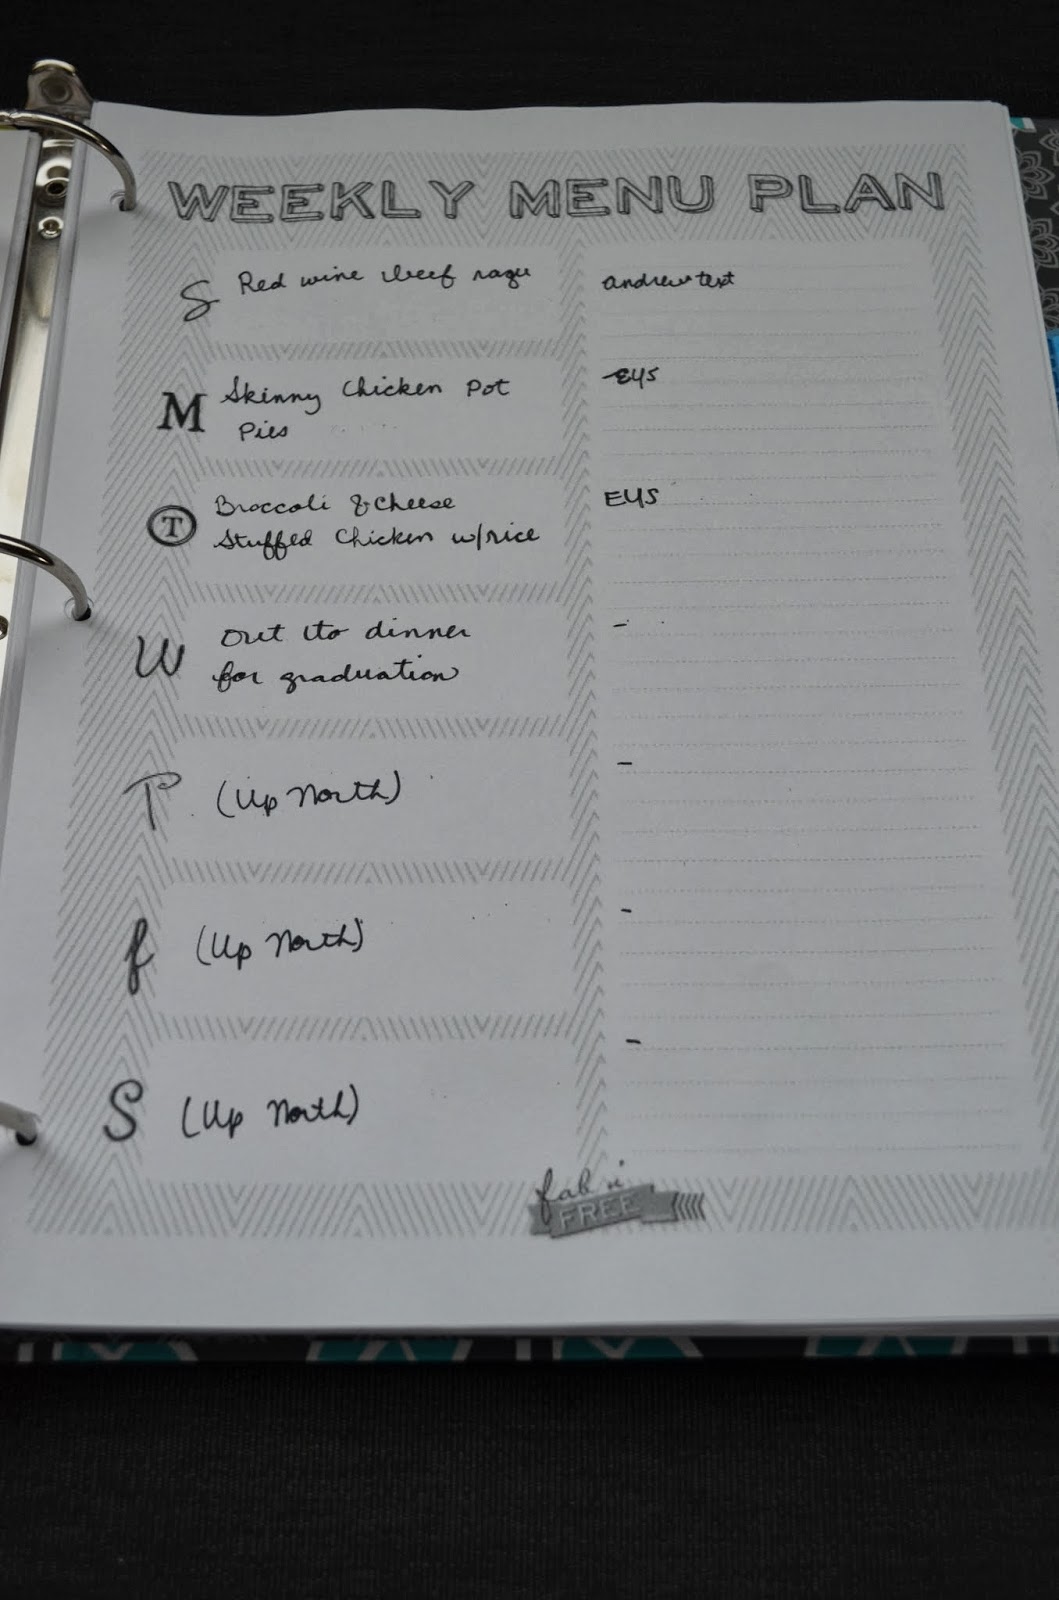 WEEKLY MENU PLAN
S Red wine beef ragu andrew text
M Skinny Chicken Pot EYS
Pies
T Broccoli & Cheese EYS
Stuffed Chicken w/rice
W Out to dinner -
for graduation
T (Up North) -
f (Up North) -
S (Up North) -
fab n'
FREE